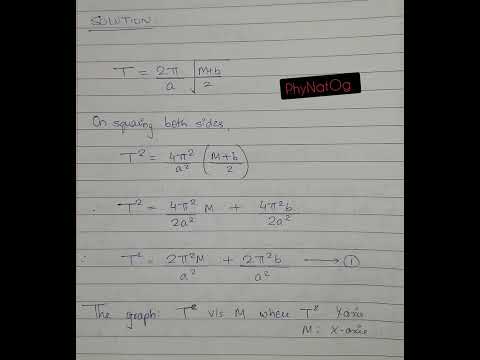 SOLUTION
T = 2π/a √(M+b)/2
PhyNatOg
On squaring both sides,
T² = 4π²/a² (M+b/2)
∴ T² = 4π²/2a² M + 4π²b/2a²
∴ T² = 2π²M/a² + 2π²b/a² → ①
The graph: T² v/s M when T² Yaxis
M: X-axis